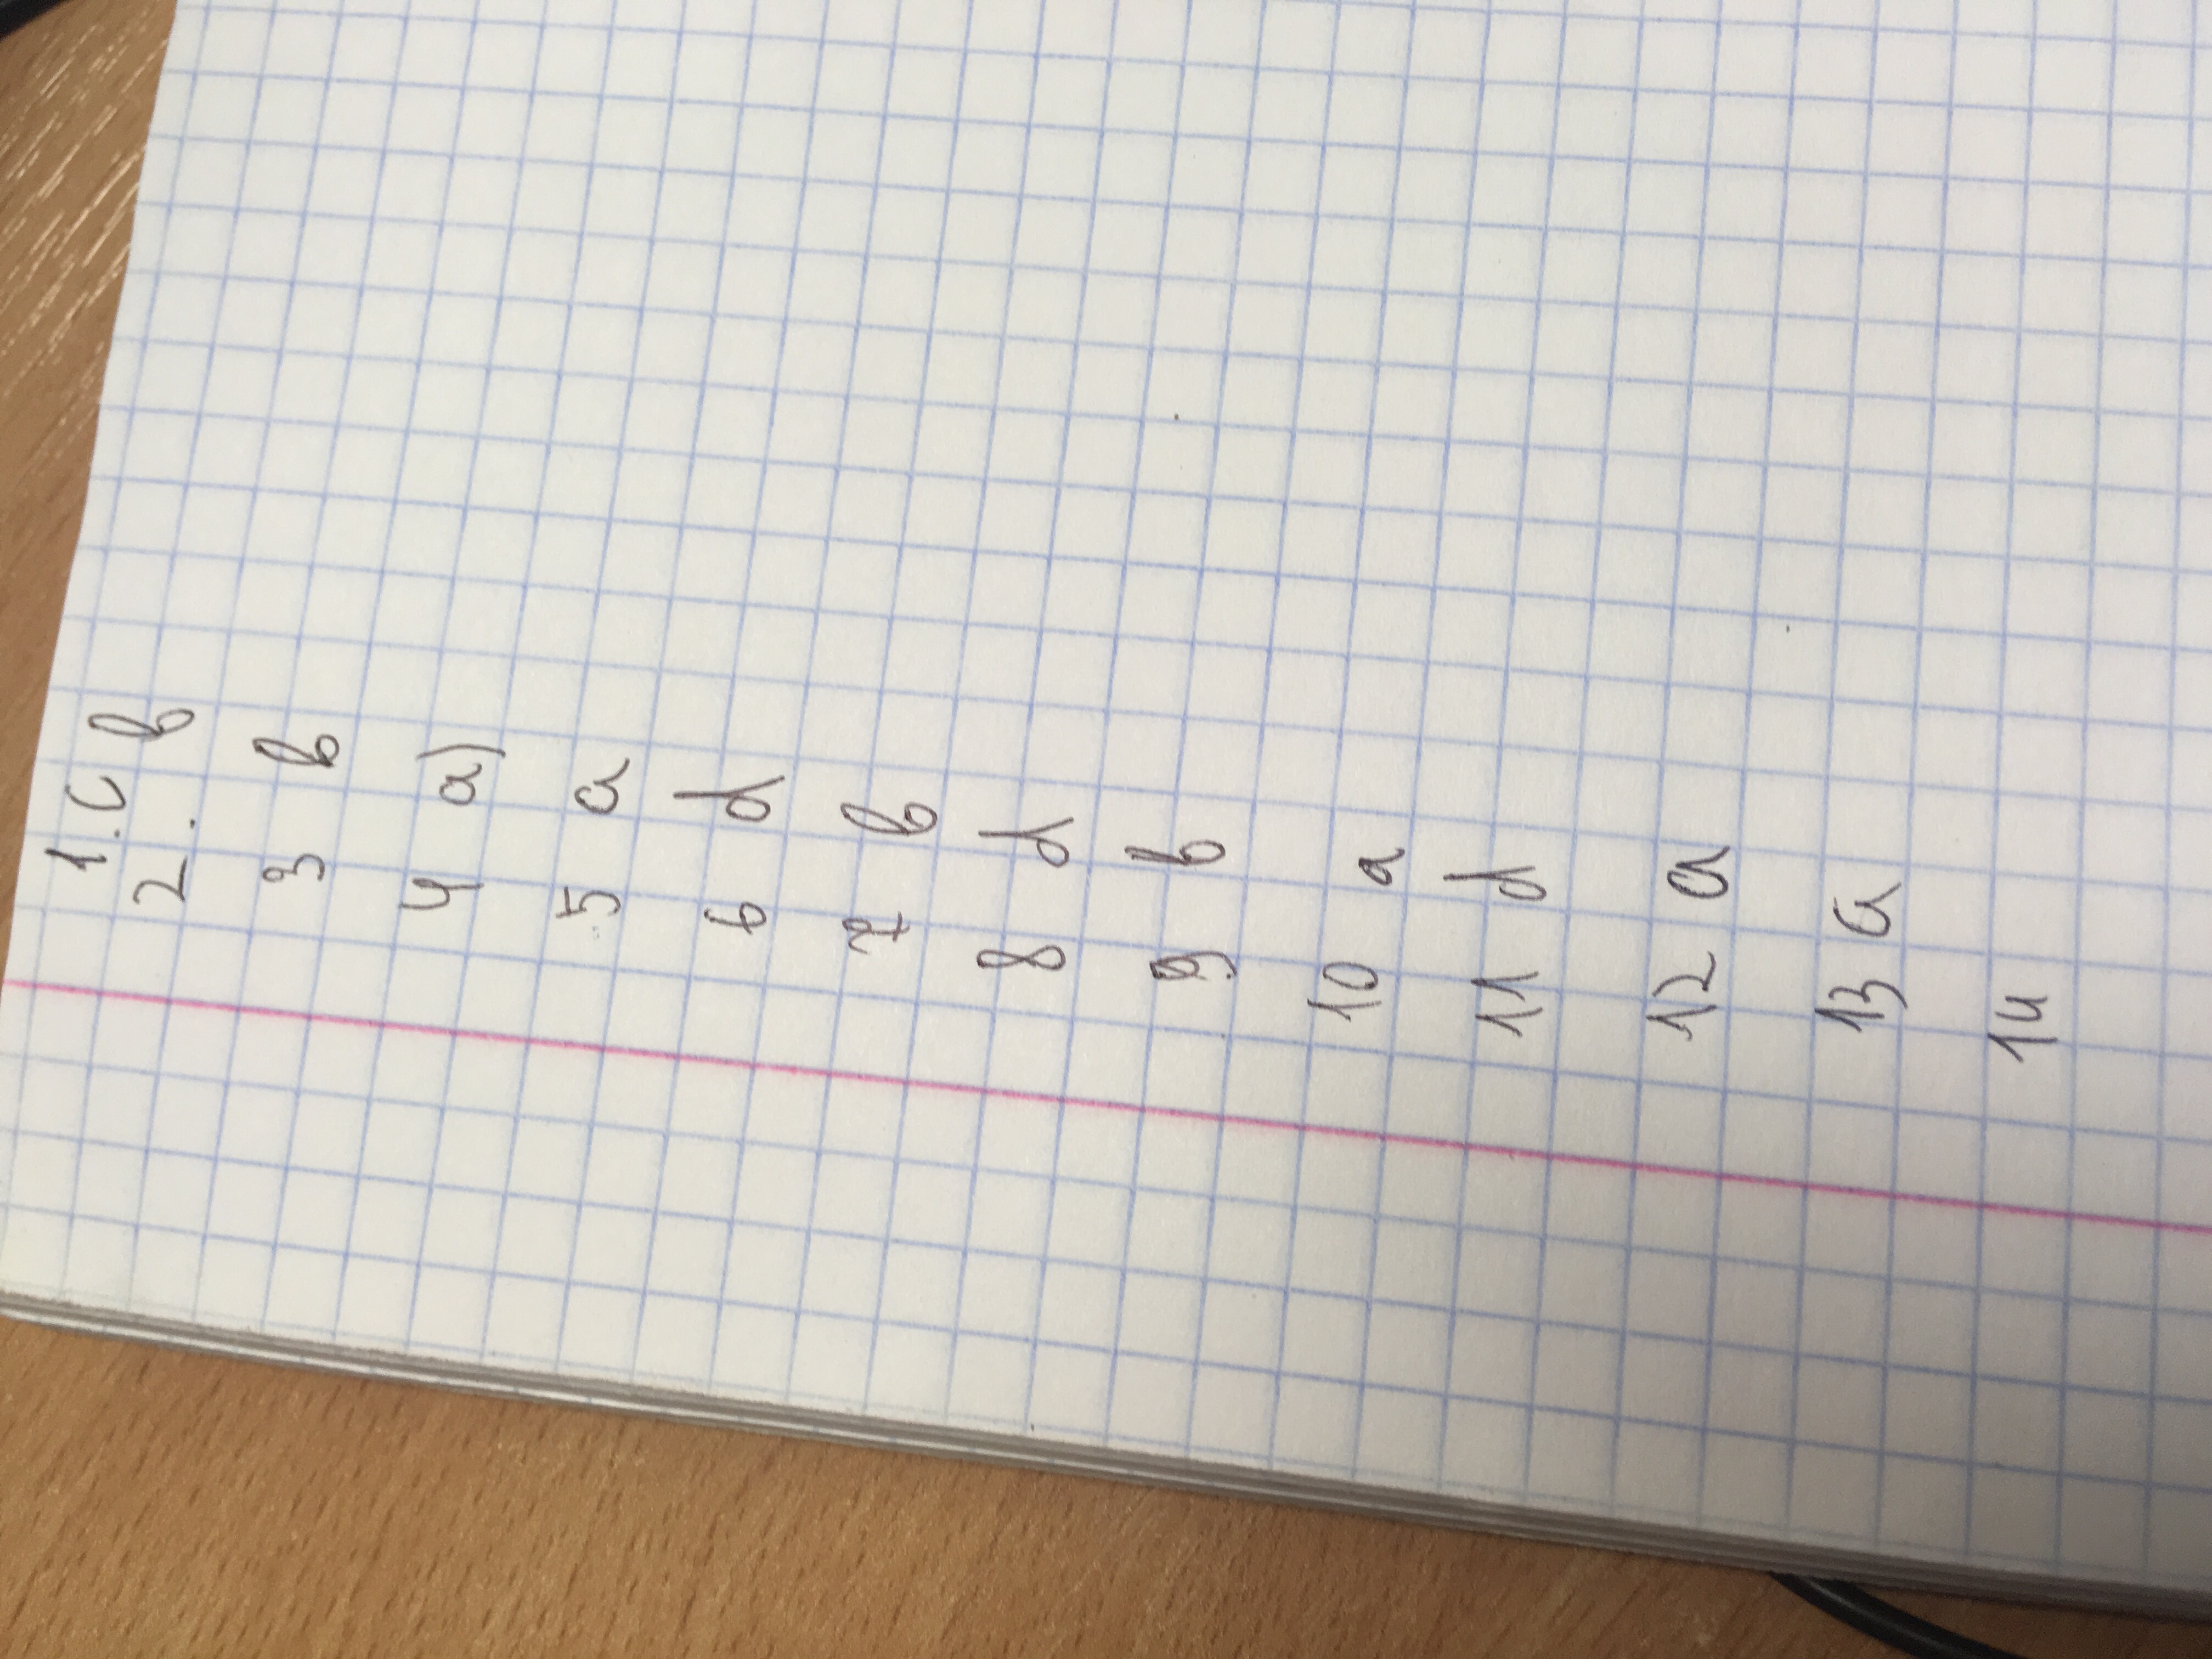 1. c
2. b
3 b
4 a)
5 a
6 d
7 b
8 d
9 b
10 a
11 d
12 a
13 a
14